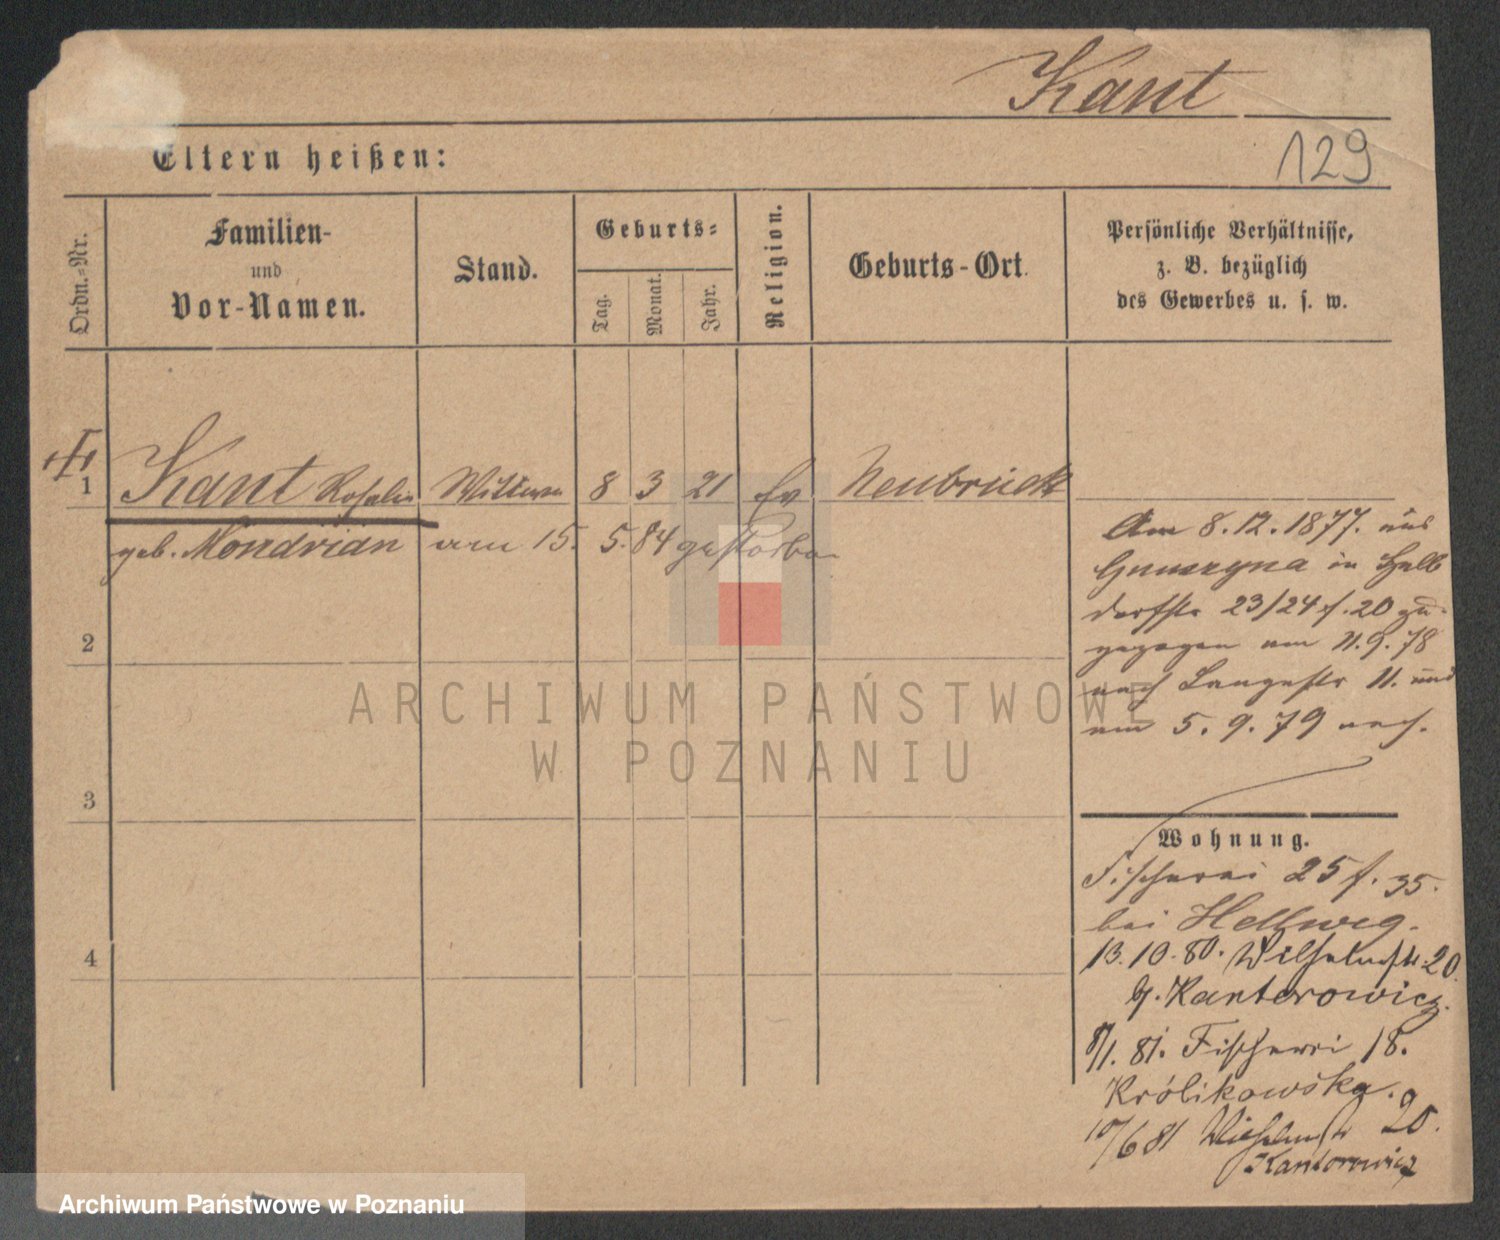 Kant
129
Eltern heißen:
Ordn.-Nr.
Familien-
und
Vor-Namen.
Stand.
Geburts-
Tag.
Monat.
Jahr.
Religion.
Geburts-Ort.
Persönliche Verhältnisse,
z. B. bezüglich
des Gewerbes u. s. w.
1 Kant Rosalie Wittwe 8 3 21 Ev Neubrück
geb. Mondrian am 15. 5. 84 gestorben
Am 8. 12. 1877. aus
in Halb
dorfstr 23/24 f. 20 zu-
gezogen am 11. 9. 78
nach Langestr 11. und
am 5. 9. 79 nach.
2
3
4
Wohnung.
Fischerei 25 f. 35.
bei Hellweg.
13. 10. 80. Wilhelmstr. 20.
b/. Kantorowicz.
8/1. 81. Fischerei 18.
Królikowska.
10/6 81 Wilhelmstr 20.
Kantorowicz
ARCHIWUM PAŃSTWOWE
W POZNANIU
Archiwum Państwowe w Poznaniu